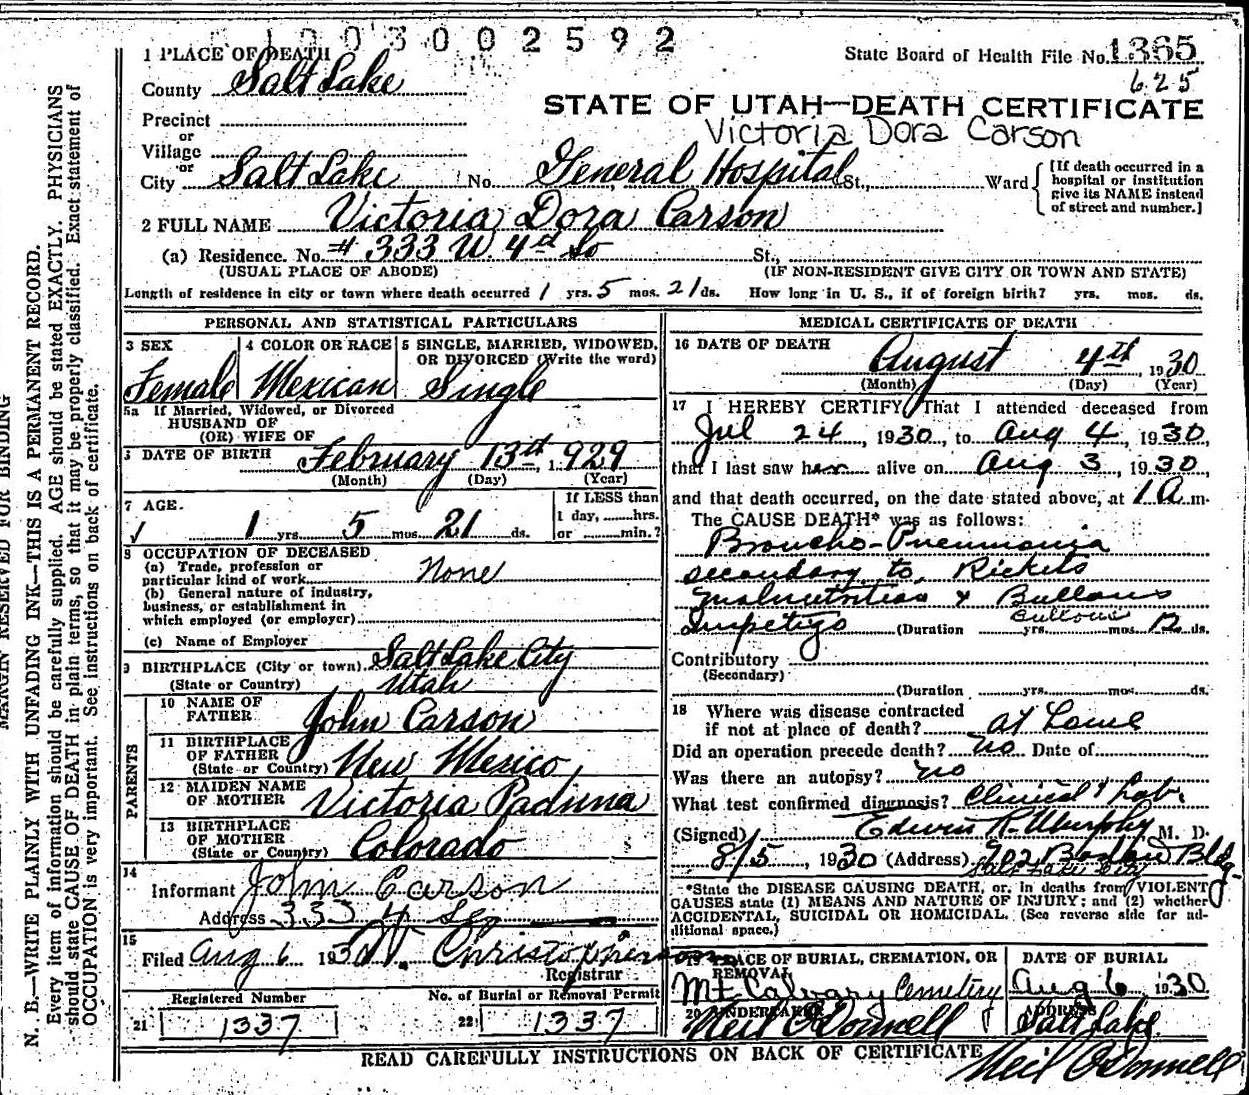 1003002592
1 PLACE OF DEATH
State Board of Health File No. 1365
County Salt Lake
625
STATE OF UTAH—DEATH CERTIFICATE
Precinct
Victoria Dora Carson
or
Village
or
City Salt Lake No. General Hospital St., Ward
[If death occurred in a hospital or institution give its NAME instead of street and number.]
2 FULL NAME Victoria Dora Carson
(a) Residence. No. # 333 W. 4th So St.,
(USUAL PLACE OF ABODE) (IF NON-RESIDENT GIVE CITY OR TOWN AND STATE)
Length of residence in city or town where death occurred 1 yrs. 5 mos. 21 ds. How long in U. S., if of foreign birth? yrs. mos. ds.
PERSONAL AND STATISTICAL PARTICULARS
3 SEX 4 COLOR OR RACE 5 SINGLE, MARRIED, WIDOWED,
OR DIVORCED (Write the word)
Female Mexican Single
5a If Married, Widowed, or Divorced
HUSBAND OF
(OR) WIFE OF
DATE OF BIRTH February 13th, 1929
(Month) (Day) (Year)
7 AGE.
If LESS than
1 day, hrs.
1 yrs 5 mos. 21 ds. or min.?
8 OCCUPATION OF DECEASED
(a) Trade, profession or
particular kind of work None
(b) General nature of industry,
business, or establishment in
which employed (or employer)
(c) Name of Employer
9 BIRTHPLACE (City or town) Salt Lake City
(State or Country) Utah
PARENTS
10 NAME OF
FATHER John Carson
11 BIRTHPLACE
OF FATHER
(State or Country) New Mexico
12 MAIDEN NAME
OF MOTHER Victoria
13 BIRTHPLACE
OF MOTHER
(State or Country) Colorado
14
Informant John Carson
Address 333 4 So
15
Filed Aug 6 1930
Registrar
Registered Number No. of Burial or Removal Permit
21 1337 22 1337
MEDICAL CERTIFICATE OF DEATH
16 DATE OF DEATH
August 4th, 1930
(Month) (Day) (Year)
17 I HEREBY CERTIFY That I attended deceased from
Jul 24, 1930, to Aug 4, 1930,
that I last saw her alive on Aug 3, 1930
and that death occurred, on the date stated above, at 1 A m.
The CAUSE DEATH* was as follows:
Broncho-Pneumonia
secondary to Rickets
Malnutrition & Bullous
Bullous
Impetigo (Duration yrs. mos. 12 ds.
Contributory
(Secondary)
(Duration yrs. mos. ds.
18 Where was disease contracted
if not at place of death? at home
Did an operation precede death? no Date of
Was there an autopsy? no
What test confirmed diagnosis? Clinical & Lab.
(Signed) Edwin R. Murphy M. D.
8/5, 1930 (Address) 902 Boston Bldg.
Salt Lake City
*State the DISEASE CAUSING DEATH, or, in deaths from VIOLENT
CAUSES state (1) MEANS AND NATURE OF INJURY: and (2) whether
ACCIDENTAL, SUICIDAL OR HOMICIDAL. (See reverse side for ad-
ditional space.)
19 PLACE OF BURIAL, CREMATION, OR
REMOVAL
DATE OF BURIAL
Mt Calvary Cemetery Aug 6 1930
20 UNDERTAKER ADDRESS
Neil O'Donnell Salt Lake
READ CAREFULLY INSTRUCTIONS ON BACK OF CERTIFICATE
Neil O'Donnell
MARGIN RESERVED FOR BINDING
N. B.—WRITE PLAINLY WITH UNFADING INK—THIS IS A PERMANENT RECORD.
Every item of information should be carefully supplied. AGE should be stated EXACTLY. PHYSICIANS
should state CAUSE OF DEATH in plain terms, so that it may be properly classified. Exact statement of
OCCUPATION is very important. See instructions on back of certificate.